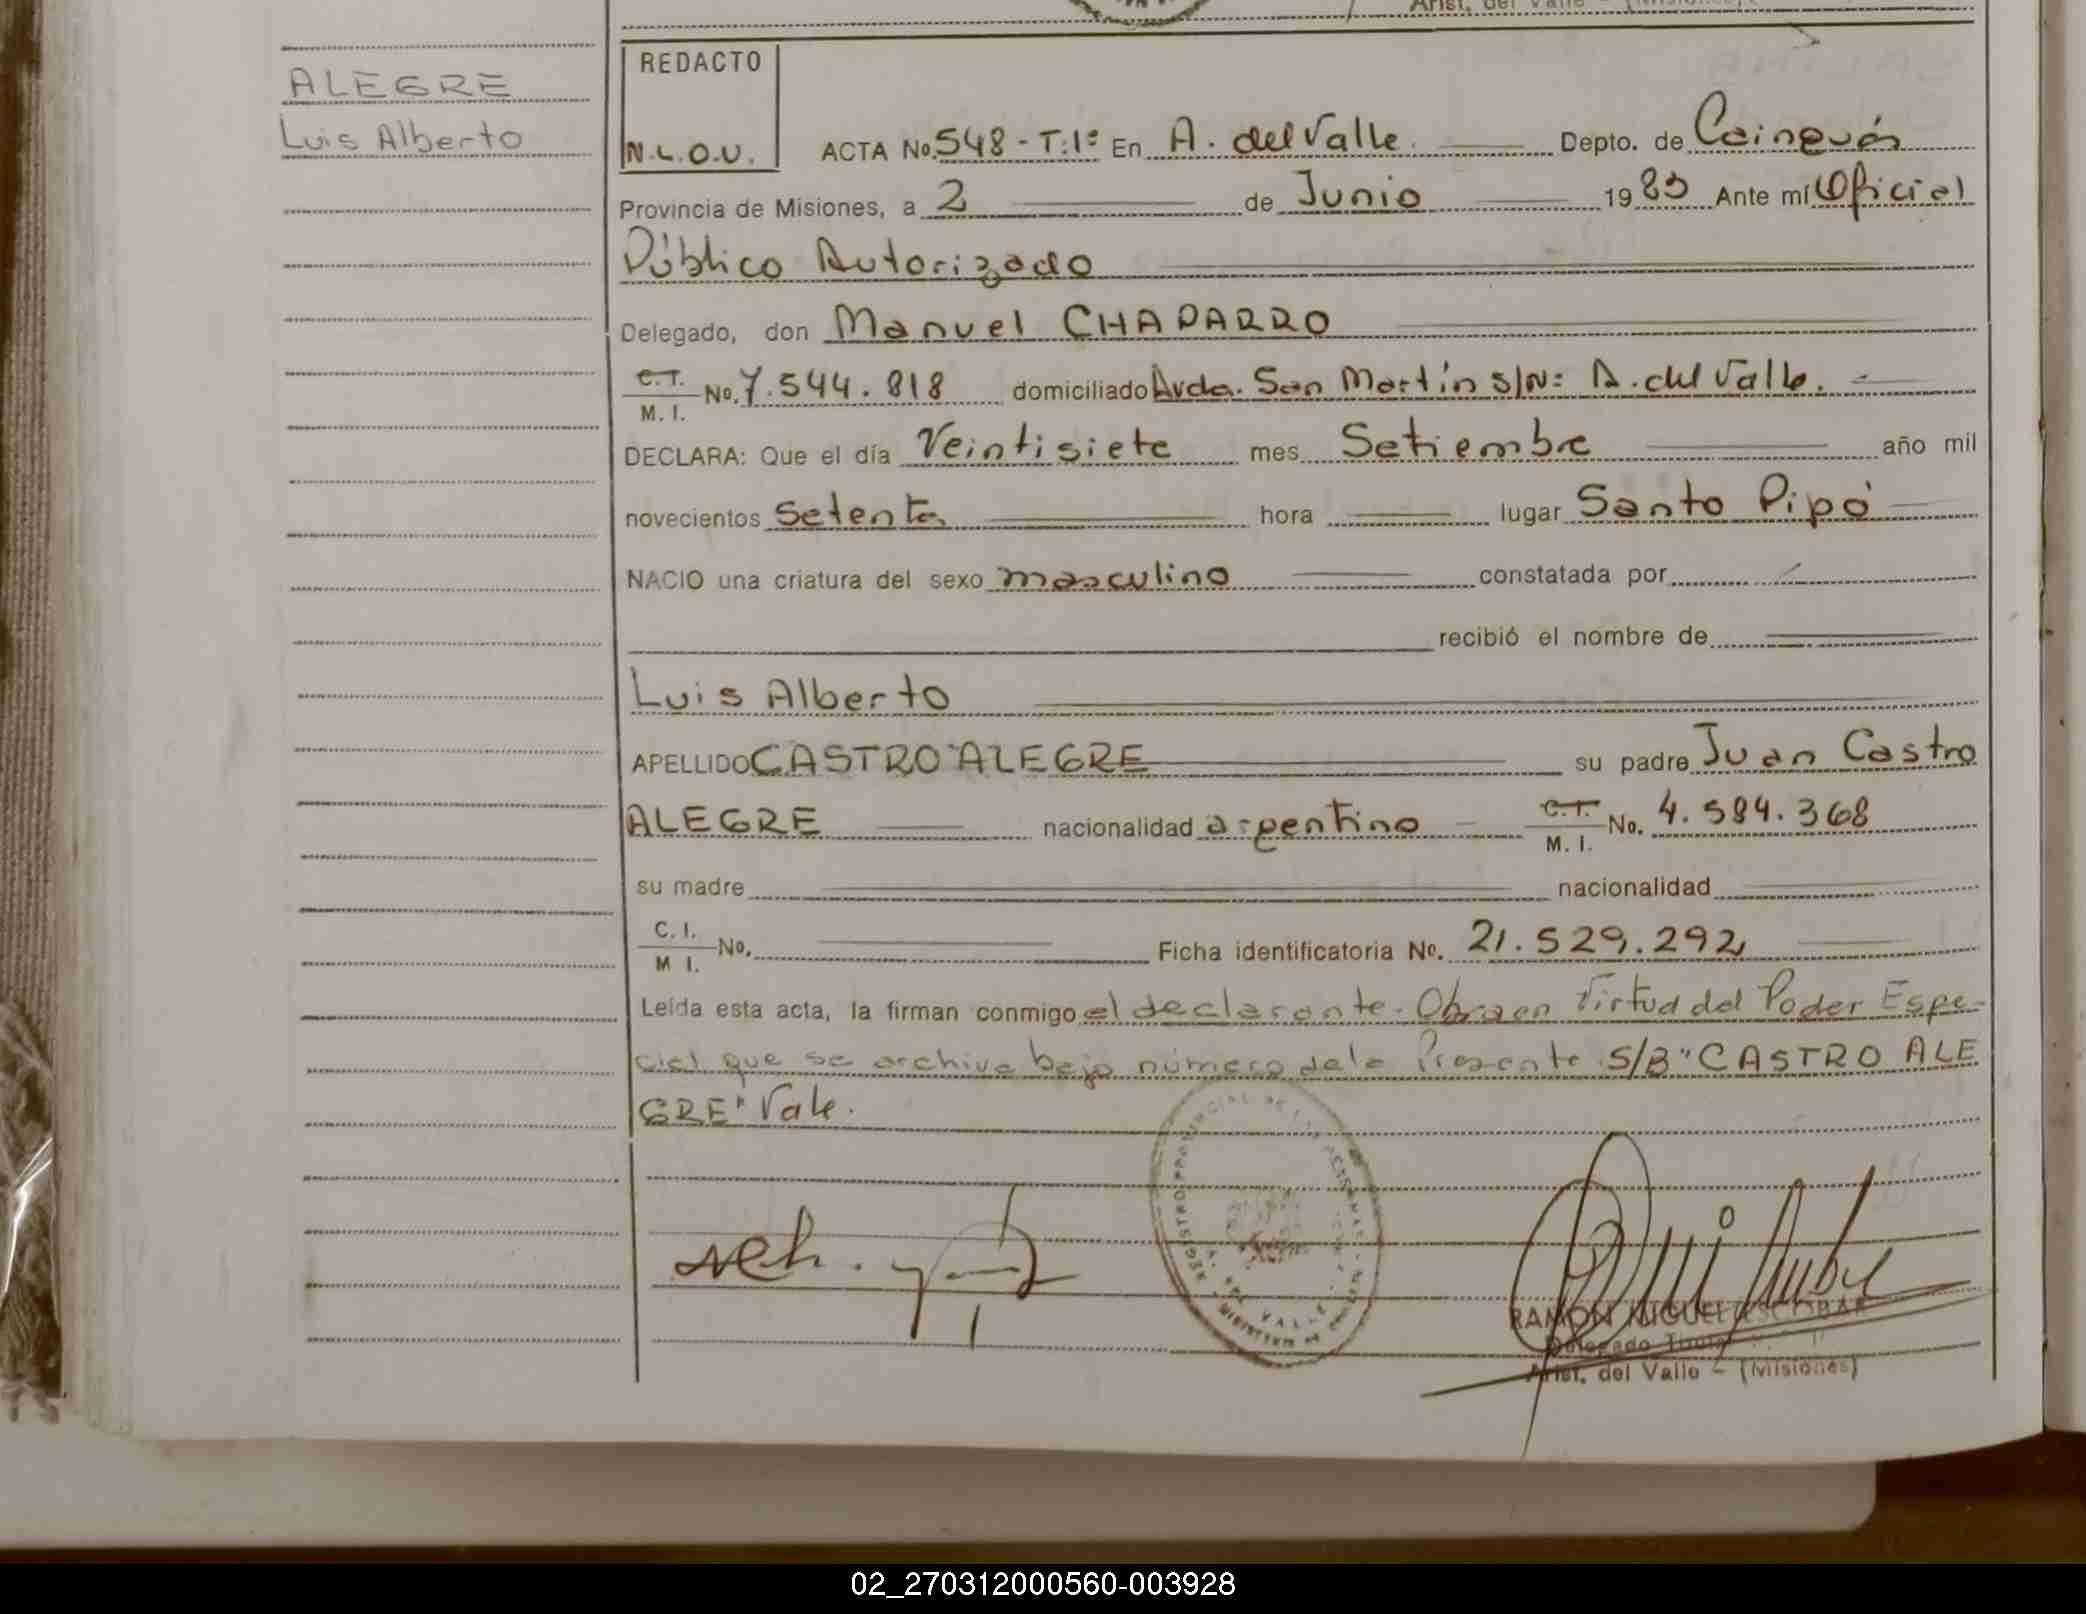 Arist. del Valle - (Misiones)
ALEGRE
Luis Alberto
REDACTO
N.L.O.U.
ACTA No. 548 - T:1º En A. del Valle. Depto. de Cainguás
Provincia de Misiones, a 2 de Junio 1983 Ante mí Oficial
Público Autorizado
Delegado, don Manuel CHAPARRO
C.I. M. I. No. 7.544.818 domiciliado Avda. San Martín S/N: A. del Valle.
DECLARA: Que el día Veintisiete mes Setiembre año mil
novecientos Setenta hora lugar Santo Pipó
NACIO una criatura del sexo masculino constatada por
recibió el nombre de
Luis Alberto
APELLIDO CASTRO ALEGRE su padre Juan Castro
ALEGRE nacionalidad argentino C.I. M. I. No. 4.584.368
su madre nacionalidad
C. I. M I. No. Ficha identificatoria No. 21.529.292
Leída esta acta, la firman conmigo el declarante. Obra en Virtud del Poder Espe-
cial que se archiva bajo número de la Presente S/B "CASTRO ALE
GRE" Vale.
RAMON MIGUEL ESCOBAR
Delegado Titular
Arist. del Valle - (Misiones)
02_270312000560-003928